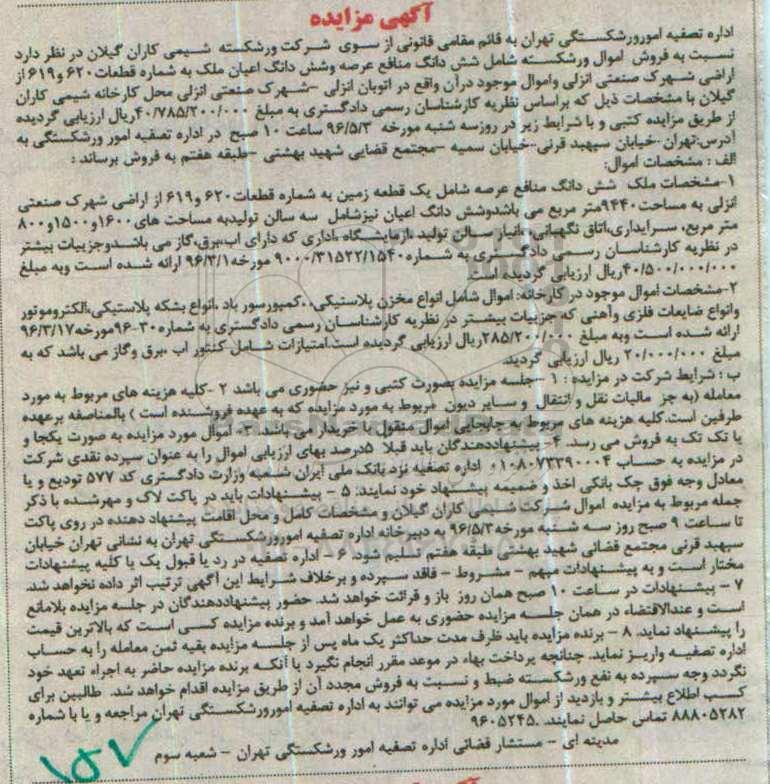 آگهی مزایده
اداره تصفیه امورورشکستگی تهران به قائم مقامی قانونی از سوی شرکت ورشکسته شیمی کاران گیلان در نظر دارد
نسبت به فروش اموال ورشکسته شامل شش دانگ منافع عرصه وشش دانگ اعیان ملک به شماره قطعات ۶۲۰ و ۶۱۹ از
اراضی شهرک صنعتی انزلی واموال موجود درآن واقع در اتوبان انزلی -شهرک صنعتی انزلی محل کارخانه شیمی کاران
گیلان با مشخصات ذیل که براساس نظریه کارشناسان رسمی دادگستری به مبلغ ۴۰/۷۸۵/۲۰۰/۰۰۰ریال ارزیابی گردیده
از طریق مزایده کتبی و با شرایط زیر در روزسه شنبه مورخه ۹۶/۵/۳ ساعت ۱۰ صبح در اداره تصفیه امور ورشکستگی به
آدرس:تهران-خیابان سپهبد قرنی-خیابان سمیه -مجتمع قضایی شهید بهشتی -طبقه هفتم به فروش برساند :
الف : مشخصات اموال:
۱-مشخصات ملک شش دانگ منافع عرصه شامل یک قطعه زمین به شماره قطعات ۶۲۰ و ۶۱۹ از اراضی شهرک صنعتی
انزلی به مساحت ۹۴۴۰متر مربع می باشدوشش دانگ اعیان نیزشامل سه سالن تولیدبه مساحت های ۱۶۰۰و۱۵۰۰و۸۰۰
متر مربع، سرایداری،اتاق نگهبانی، انبار سالن تولید ،ازمایشگاه ،اداری که دارای اب،برق،گاز می باشدوجزییات بیشتر
در نظریه کارشناسان رسمی دادگستری به شماره ۹۰۰۰/۳۱۵۲۲/۱۵۴۰ مورخه ۹۶/۳/۱ ارائه شده است وبه مبلغ
۴۰/۵۰۰/۰۰۰/۰۰۰ریال ارزیابی گردیده است
۲-مشخصات اموال موجود در کارخانه: اموال شامل انواع مخزن پلاستیکی،.کمپورسور باد ،انواع بشکه پلاستیکی،الکتروموتور
وانواع ضایعات فلزی وآهنی که جزییات بیشتر در نظریه کارشناسان رسمی دادگستری به شماره ۳۰-۹۶مورخه ۹۶/۳/۱۷
ارائه شده است وبه مبلغ ۲۸۵/۲۰۰/۰۰۰ریال ارزیابی گردیده است.امتیازات شامل کنتور اب ،برق وگاز می باشد که به
مبلغ ۲۰/۰۰۰/۰۰۰ ریال ارزیابی گردید.
ب : شرایط شرکت در مزایده : ۱ -جلسه مزایده بصورت کتبی و نیز حضوری می باشد ۲ -کلیه هزینه های مربوط به مورد
معامله (به جز مالیات نقل و انتقال و سایر دیون مربوط به مورد مزایده که به عهده فروشنده است ) بالمناصفه برعهده
طرفین است.کلیه هزینه های مربوط به جابجایی اموال منقول با خریدار می باشد. ۳- اموال مورد مزایده به صورت یکجا و
یا تک تک به فروش می رسد. ۴- پیشنهاددهندگان باید قبلا ۵درصد بهای ارزیابی اموال را به عنوان سپرده نقدی شرکت
در مزایده به حساب ۱۰۸۰۷۳۳۹۰۰۰۴ اداره تصفیه نزد بانک ملی ایران شعبه وزارت دادگستری کد ۵۷۷ تودیع و یا
معادل وجه فوق چک بانکی اخذ و ضمیمه پیشنهاد خود نمایند. ۵ - پیشنهادات باید در پاکت لاک و مهرشده با ذکر
جمله مربوط به مزایده اموال شرکت شیمی کاران گیلان و مشخصات کامل و محل اقامت پیشنهاد دهنده در روی پاکت
تا ساعت ۹ صبح روز سه شنبه مورخه ۹۶/۵/۳ به دبیرخانه اداره تصفیه امورورشکستگی تهران به نشانی تهران خیابان
سپهبد قرنی مجتمع قضائی شهید بهشتی طبقه هفتم تسلیم شود. ۶ - اداره تصفیه در رد یا قبول یک یا کلیه پیشنهادات
مختار است و به پیشنهادات مبهم - مشروط - فاقد سپرده و برخلاف شرایط این آگهی ترتیب اثر داده نخواهد شد.
۷ - پیشنهادات در ساعت ۱۰ صبح همان روز باز و قرائت خواهد شد. حضور پیشنهاددهندگان در جلسه مزایده بلامانع
است و عندالاقتضاء در همان جلسه مزایده حضوری به عمل خواهد آمد و برنده مزایده کسی است که بالاترین قیمت
را پیشنهاد نماید. ۸ - برنده مزایده باید ظرف مدت حداکثر یک ماه پس از جلسه مزایده بقیه ثمن معامله را به حساب
اداره تصفیه واریز نماید. چنانچه پرداخت بهاء در موعد مقرر انجام نگیرد یا آنکه برنده مزایده حاضر به اجراء تعهد خود
نگردد وجه سپرده به نفع ورشکسته ضبط و نسبت به فروش مجدد آن از طریق مزایده اقدام خواهد شد. طالبین برای
کسب اطلاع بیشتر و بازدید از اموال مورد مزایده می توانند به اداره تصفیه امورورشکستگی تهران مراجعه و یا با شماره
۸۸۸۰۵۲۸۲ تماس حاصل نمایند. ۹۶۰۵۲۴۵.
مدینه ای - مستشار قضائی اداره تصفیه امور ورشکستگی تهران - شعبه سوم